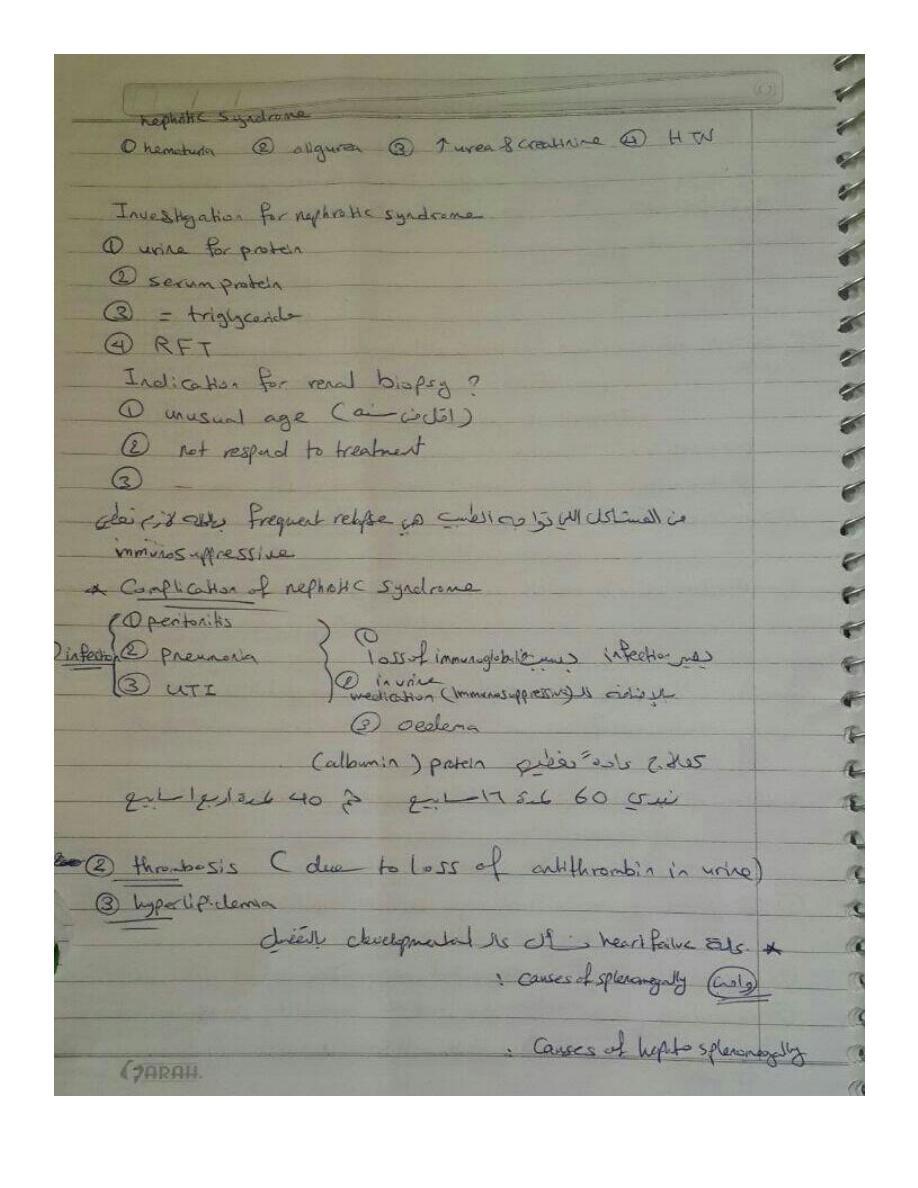 nephotic syndrome
① hematuria ② oligurea ③ ↑ urea & creatinine ④ HTN
Investigation for nephrotic syndrome
① urine for protein
② serum protein
③ = triglyceride
④ RFT
Indication for renal biopsy ?
① unusual age (اقل من سنه)
② not respond to treatment
③
من المشاكل اللي تواجه الطبيب هي frequent relapse لازم نعطي
immunosuppressive
* Complication of nephotic syndrome
① peritonitis
① infection ② pneumonia
③ UTI
① يصير infection بسبب loss of immunoglobulin
in urine
② بالإضافة للـ medication (immunosuppressive)
③ oedema
كعلاج عادة نعطيهم protein (albumin)
نبدي 60 لمدة ١٦ اسابيع ثم 40 لمدة اربع اسابيع
② thrombosis (due to loss of antithrombin in urine)
③ hyperlipidemia
* حالة heart failure نسأل عالـ developmental بالتفصيل
واجب causes of splenomegally :
Causes of hepato splenomegally :
SARAH.